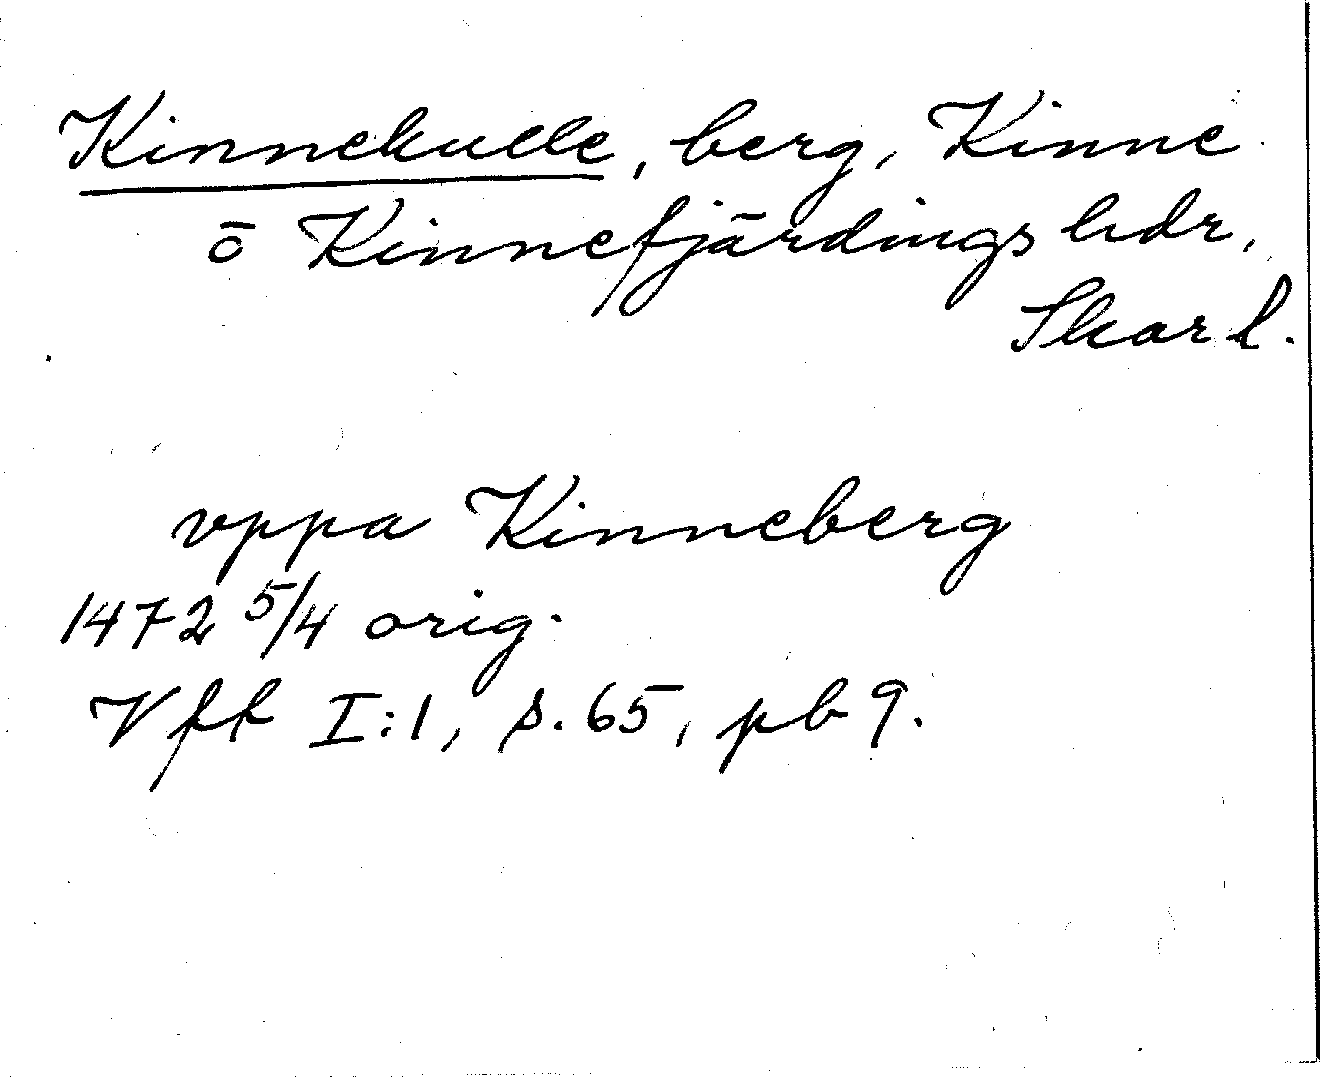 Kinnekulle, berg, Kinne
o Kinnefjärdings hdr,
Skar l.
vppa Kinneberg
1472 5/4 orig.
Vff I:1, s. 65, pb 9.